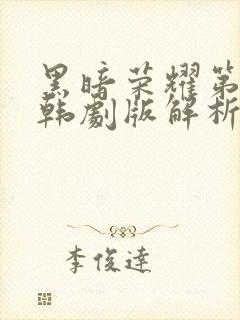 黑暗荣耀第
韩劇版解析
李俊達